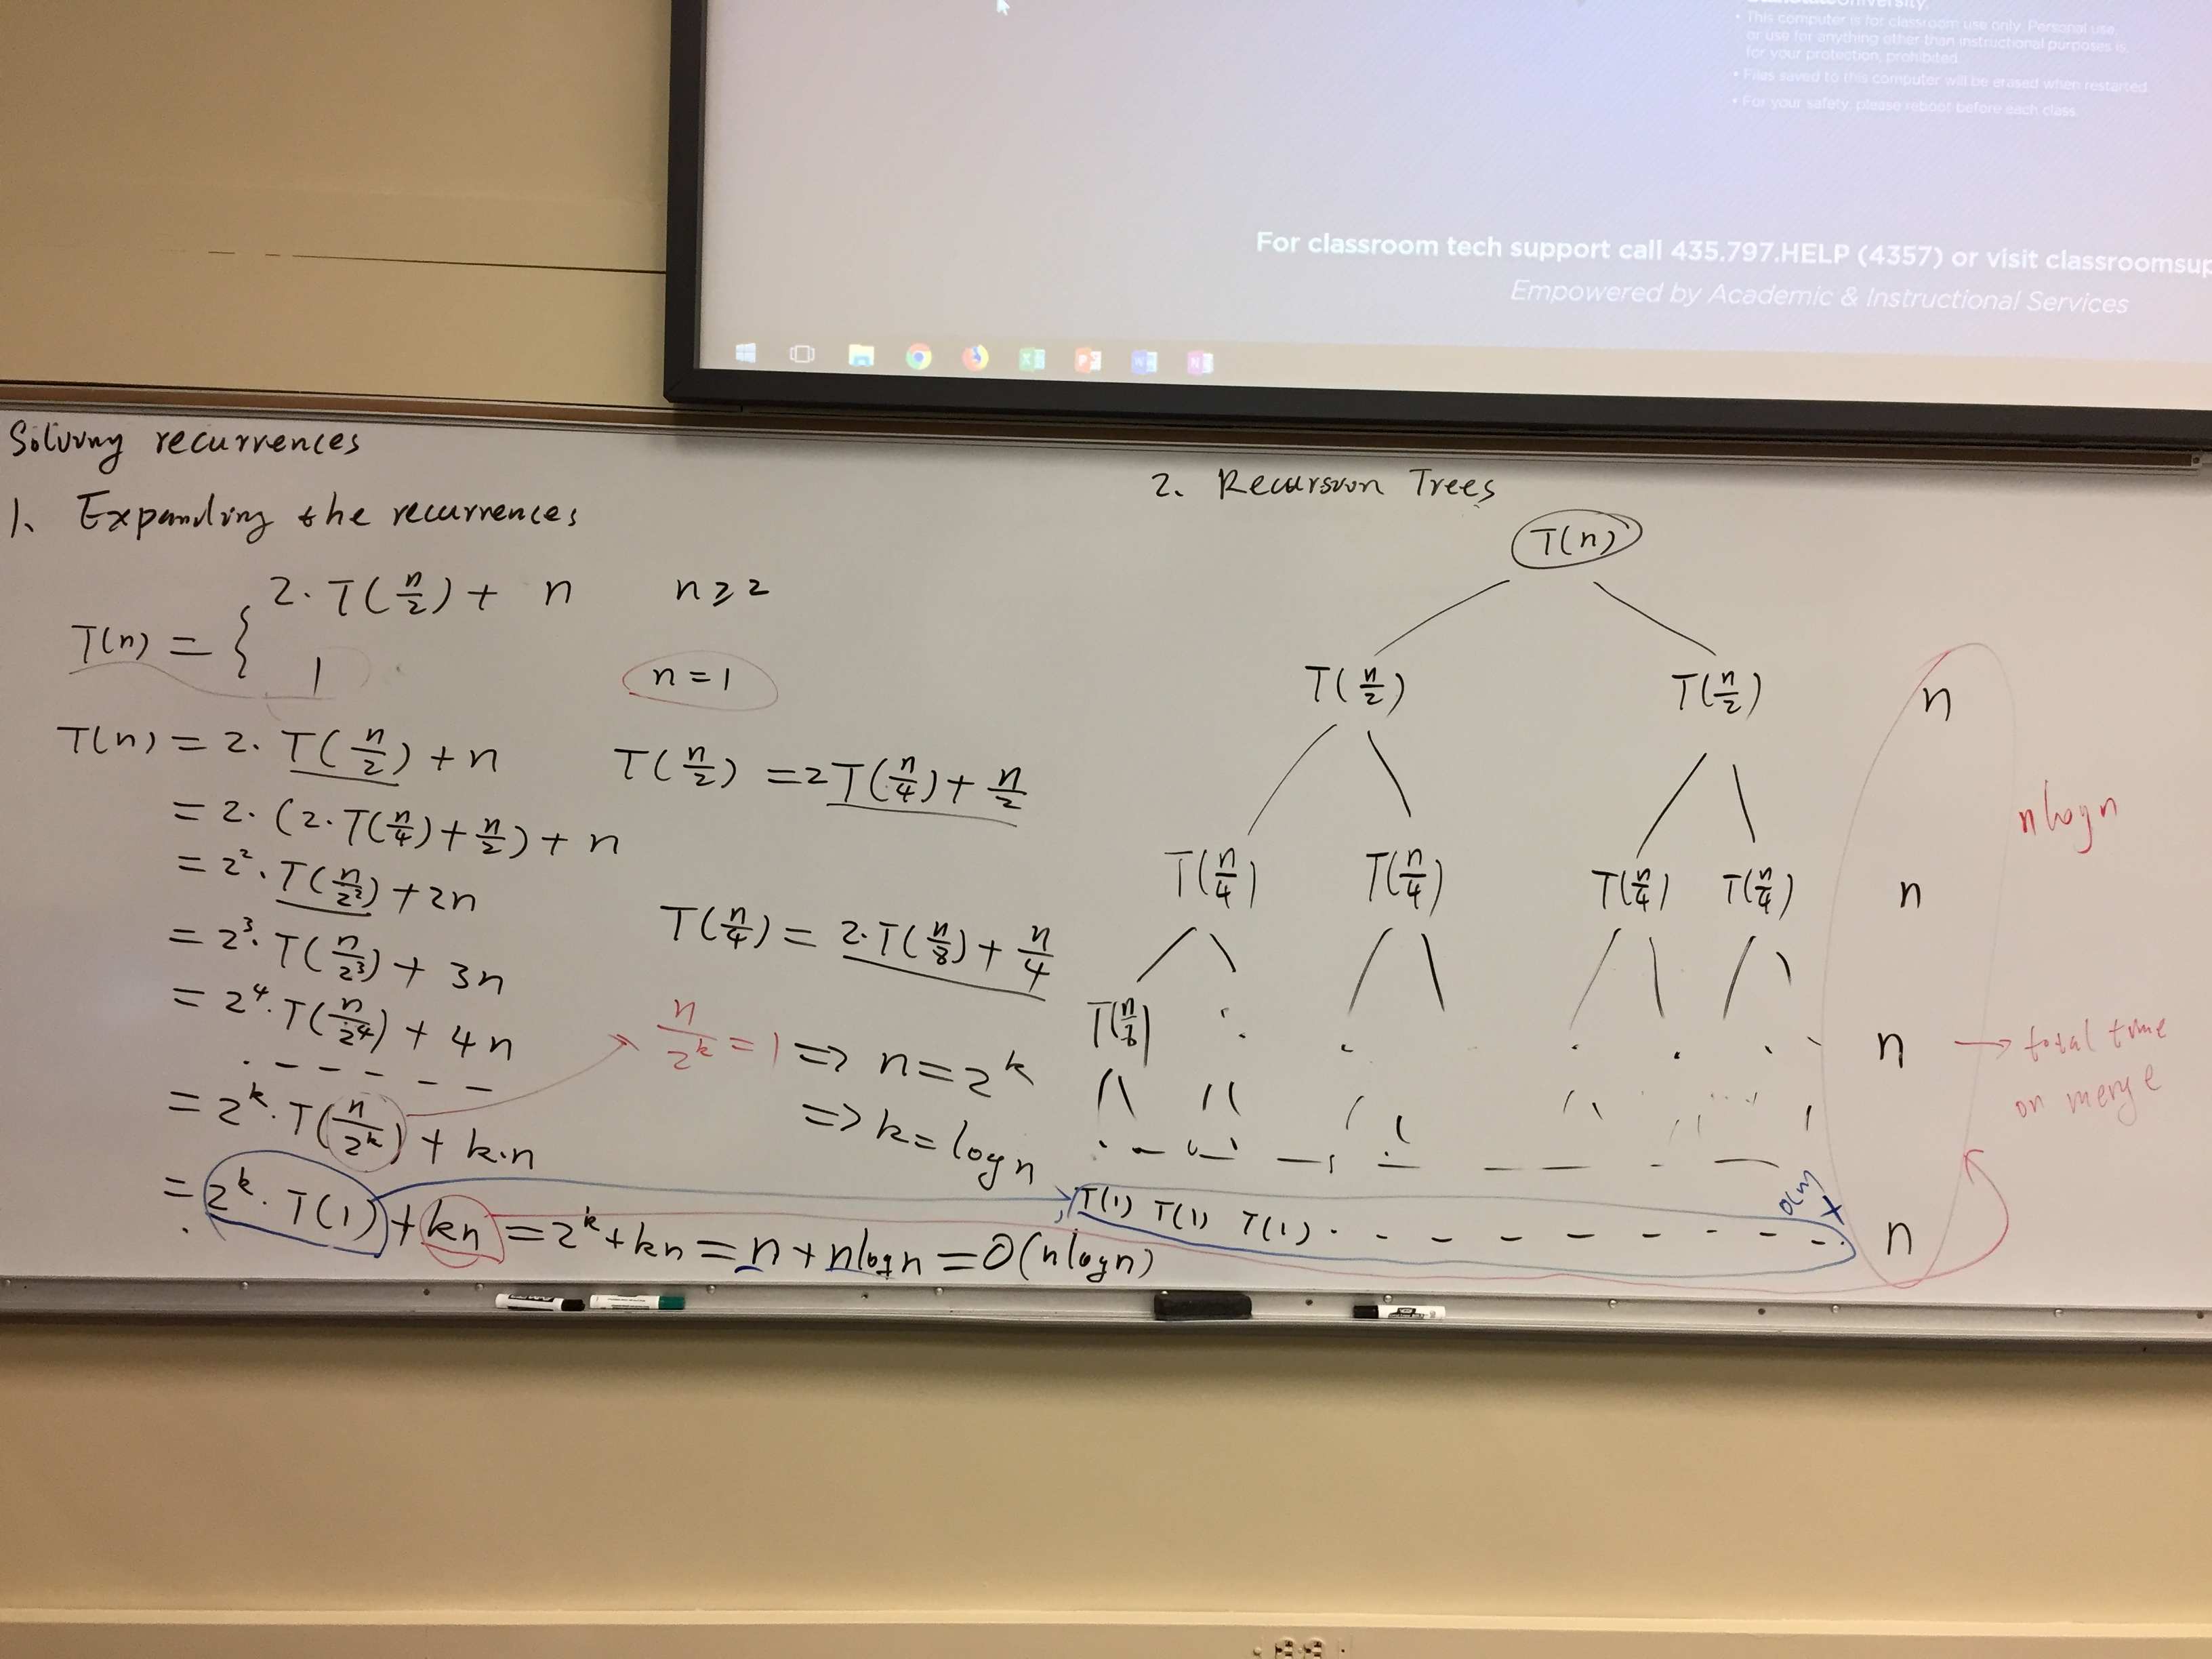 University.
• This computer is for classroom use only. Personal use,
or use for anything other than instructional purposes is,
for your protection, prohibited.
• Files saved to this computer will be erased when restarted.
• For your safety, please reboot before each class.
For classroom tech support call 435.797.HELP (4357) or visit classroomsup
Empowered by Academic & Instructional Services
Solving recurrences
1. Expanding the recurrences
T(n) = { 2·T(n/2) + n n ≥ 2
1 n = 1
T(n) = 2·T(n/2) + n
= 2·(2·T(n/4) + n/2) + n
= 2²·T(n/2²) + 2n
= 2³·T(n/2³) + 3n
= 2⁴·T(n/2⁴) + 4n
= 2^k·T(n/2^k) + k·n
= 2^k·T(1) + kn = 2^k + kn = n + nlogn = O(nlogn)
T(n/2) = 2T(n/4) + n/2
T(n/4) = 2·T(n/8) + n/4
n/2^k = 1 => n = 2^k
=> k = logn
2. Recursion Trees
T(n)
T(n/2) T(n/2) n
nlogn
T(n/4) T(n/4) T(n/4) T(n/4) n
T(n/8) n → total time
on merge
O(n)
T(1) T(1) T(1) n